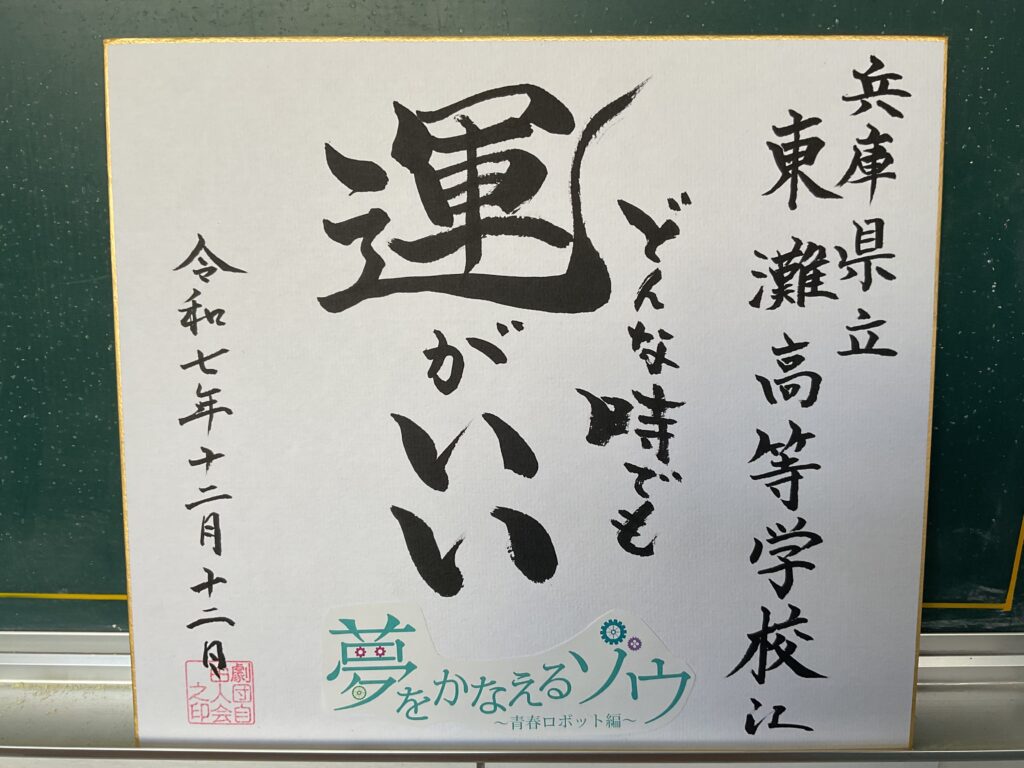 兵庫県立
東灘高等学校江
どんな時でも
運がいい
令和七年十二月十二日
劇団自
由人会
之印
夢をかなえるゾウ
～青春ロボット編～